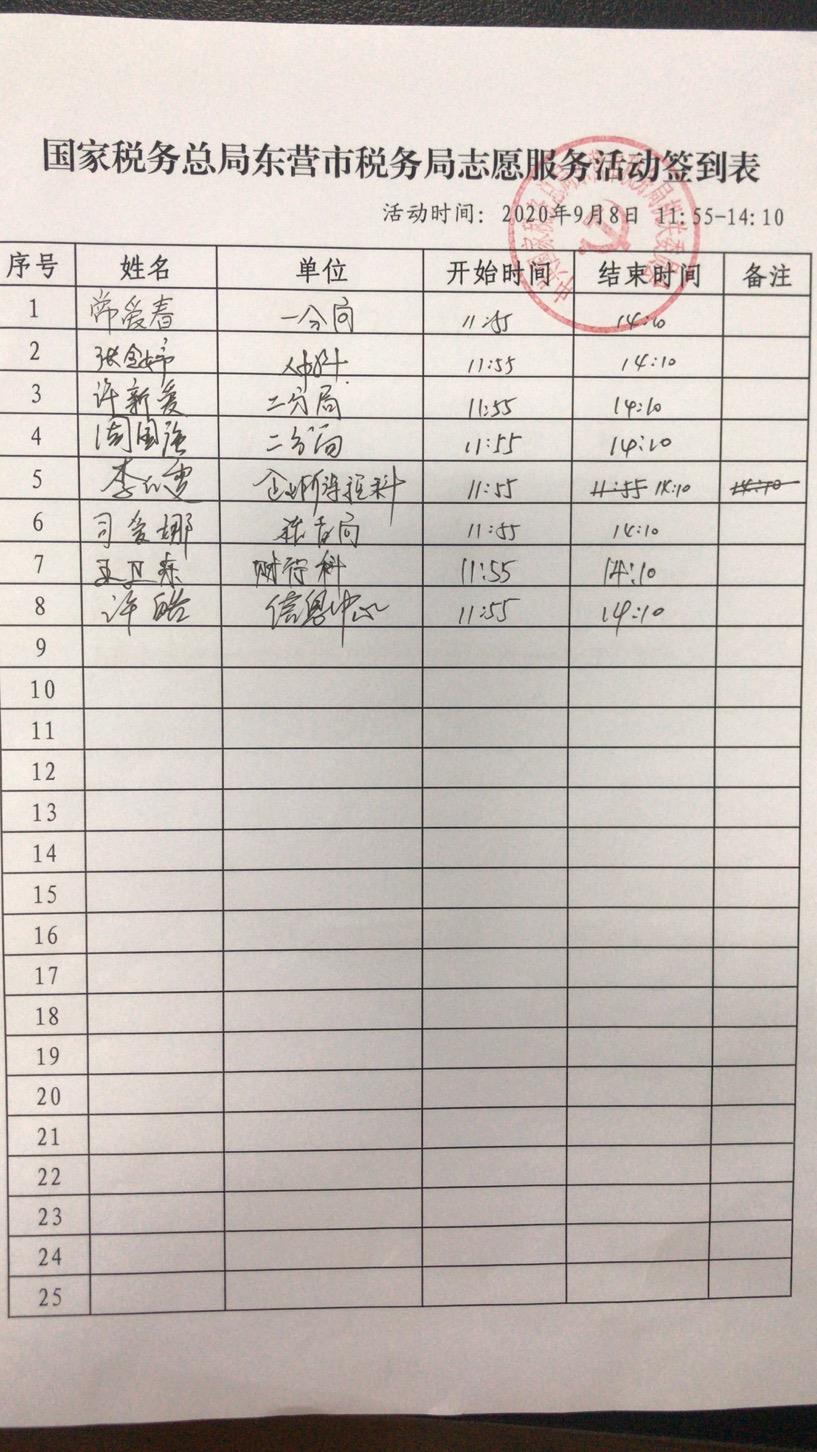 国家税务总局东营市税务局志愿服务活动签到表
活动时间: 2020年9月8日 11:55-14:10
序号 姓名 单位 开始时间 结束时间 备注
1 常爱春 一分局 11:55 14:10
2 11:55 14:10
3 许新爱 二分局 11:55 14:10
4 周国强 二分局 11:55 14:10
5 李 企业所得税科 11:55 11:55 14:10 14:10
6 司爱娜 稽查局 11:55 14:10
7 王卫东 财行科 11:55 14:10
8 许皓 信息中心 11:55 14:10
9
10
11
12
13
14
15
16
17
18
19
20
21
22
23
24
25